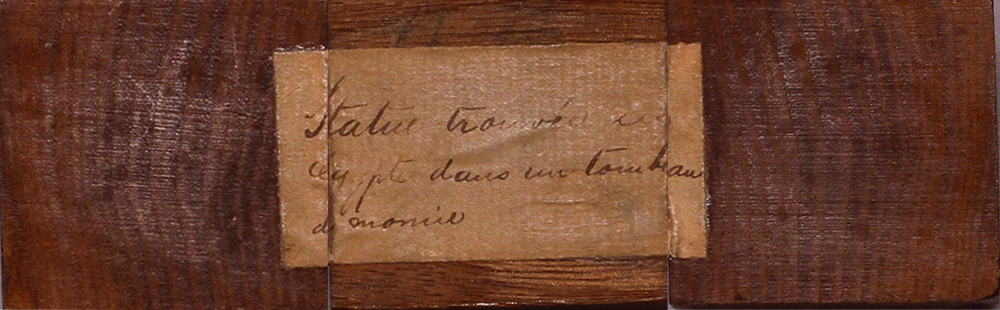 Statue trouvée en
Egypte dans un tombeau
de momie